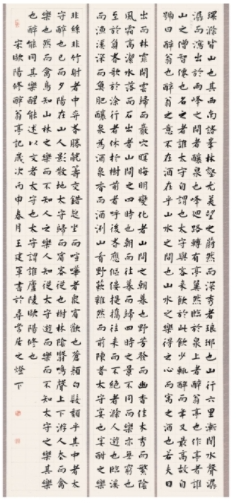 環滁皆山也其西南諸峯林壑尤美望之蔚然而深秀者琅琊也山行六里漸聞水聲潺
潺而瀉出于兩峰之間者釀泉也峰回路轉有亭翼然臨於泉上者醉翁亭也作亭者誰
山之僧智僊也名之者誰太守自謂也太守與客來飲於此飲少輒醉而年又最高故自
號曰醉翁也醉翁之意不在酒在乎山水之間也山水之樂得之心而寓之酒也若夫日
出而林霏開雲歸而巖穴暝晦明變化者山間之朝暮也野芳發而幽香佳木秀而繁陰
風霜高潔水落而石出者山間之四時也朝而往暮而歸四時之景不同而樂亦無窮也
至於負者歌於途行者休於樹前者呼後者應傴僂提攜往來而不絕者滁人遊也臨溪
而漁溪深而魚肥釀泉爲酒泉香而酒洌山肴野蔌雜然而前陳者太守宴也宴酣之樂
非絲非竹射者中弈者勝觥籌交錯起坐而喧嘩者衆賓歡也蒼顏白髮頹乎其中者太
守醉也已而夕陽在山人影散亂太守歸而賓客從也樹林陰翳鳴聲上下遊人去而禽
鳥樂也然而禽鳥知山林之樂而不知人之樂人知從太守遊而樂而不知太守之樂其樂
也醉能同其樂醒能述以文者太守也太守謂誰廬陵歐陽修也
宋歐陽修醉翁亭記歲次丙申春月王建軍書於尋常居之燈下